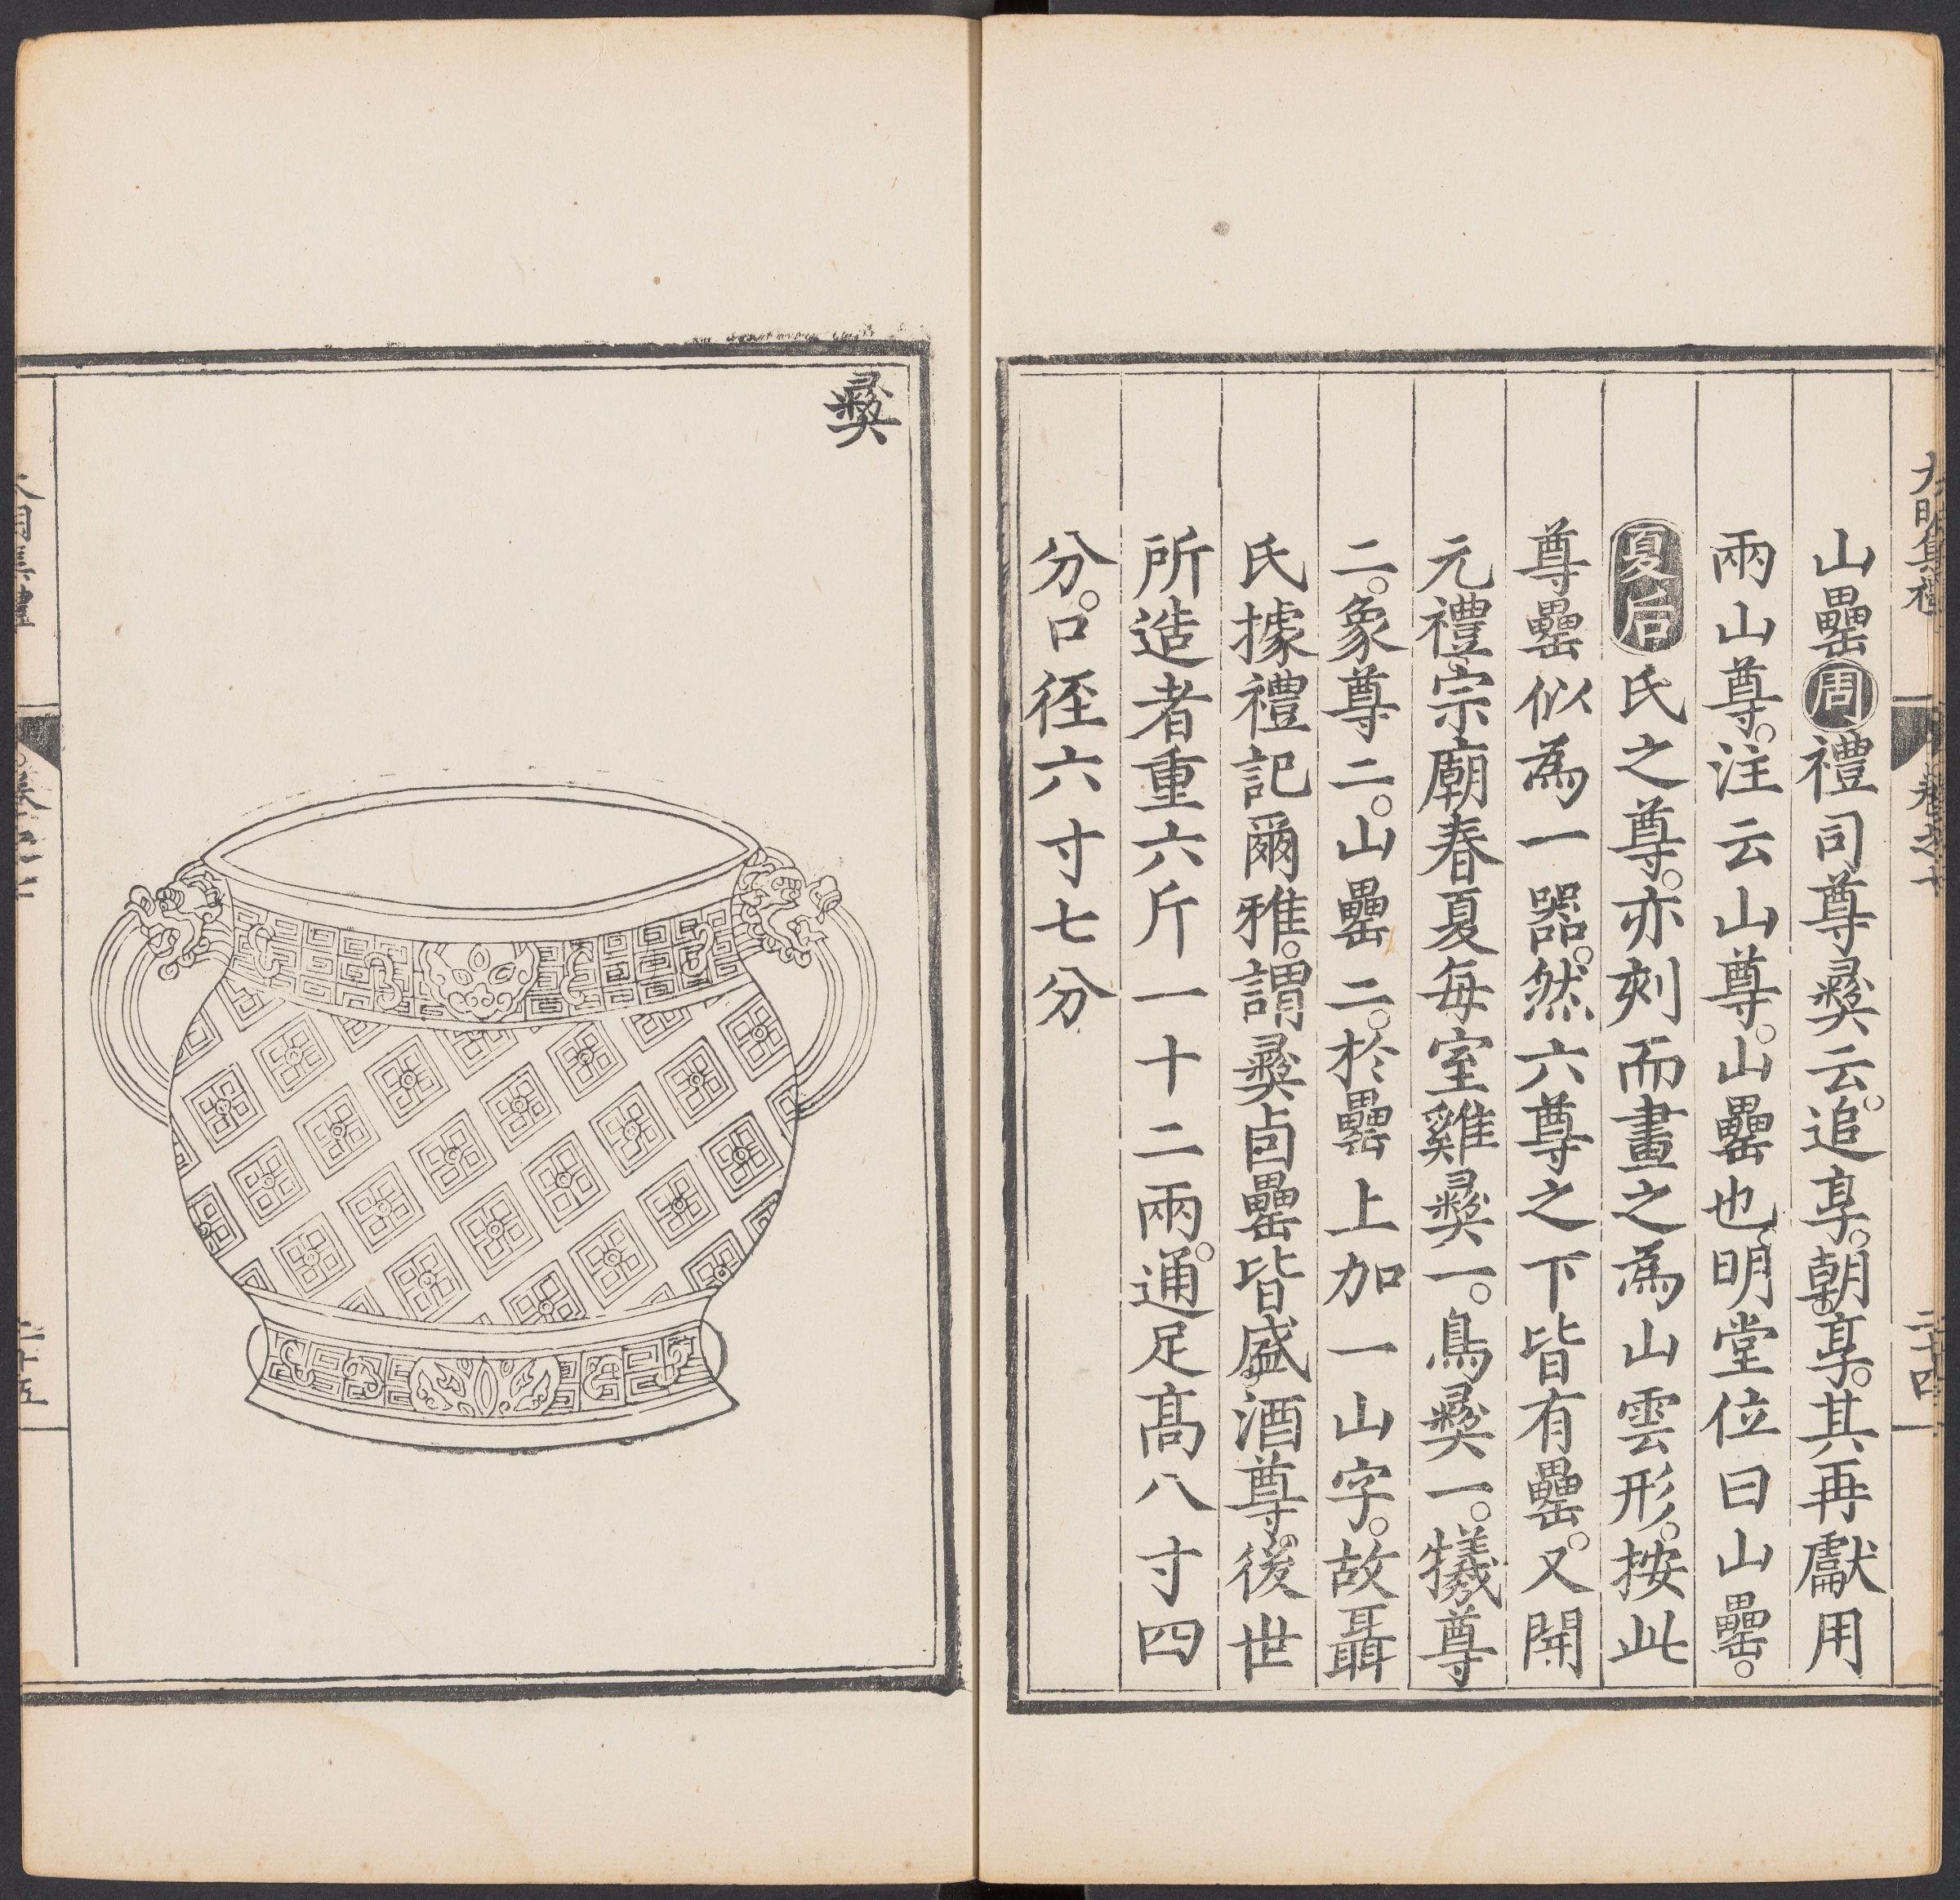 大明集禮 卷之十 二十四
山罍周禮司尊彝云。追享。朝享。其再獻用
兩山尊。注云山尊。山罍也。明堂位曰山罍。
夏后氏之尊。亦刻而畫之為山雲形。按此
尊罍似為一器。然六尊之下皆有罍。又開
元禮。宗廟春夏每室雞彝一。鳥彝一。犧尊
二。象尊二。山罍二。於罍上加一山字。故聶
氏據禮記爾雅。謂彝卣罍皆盛酒尊。後世
所造者重六斤一十二兩。通足高八寸四
分。口徑六寸七分
彝